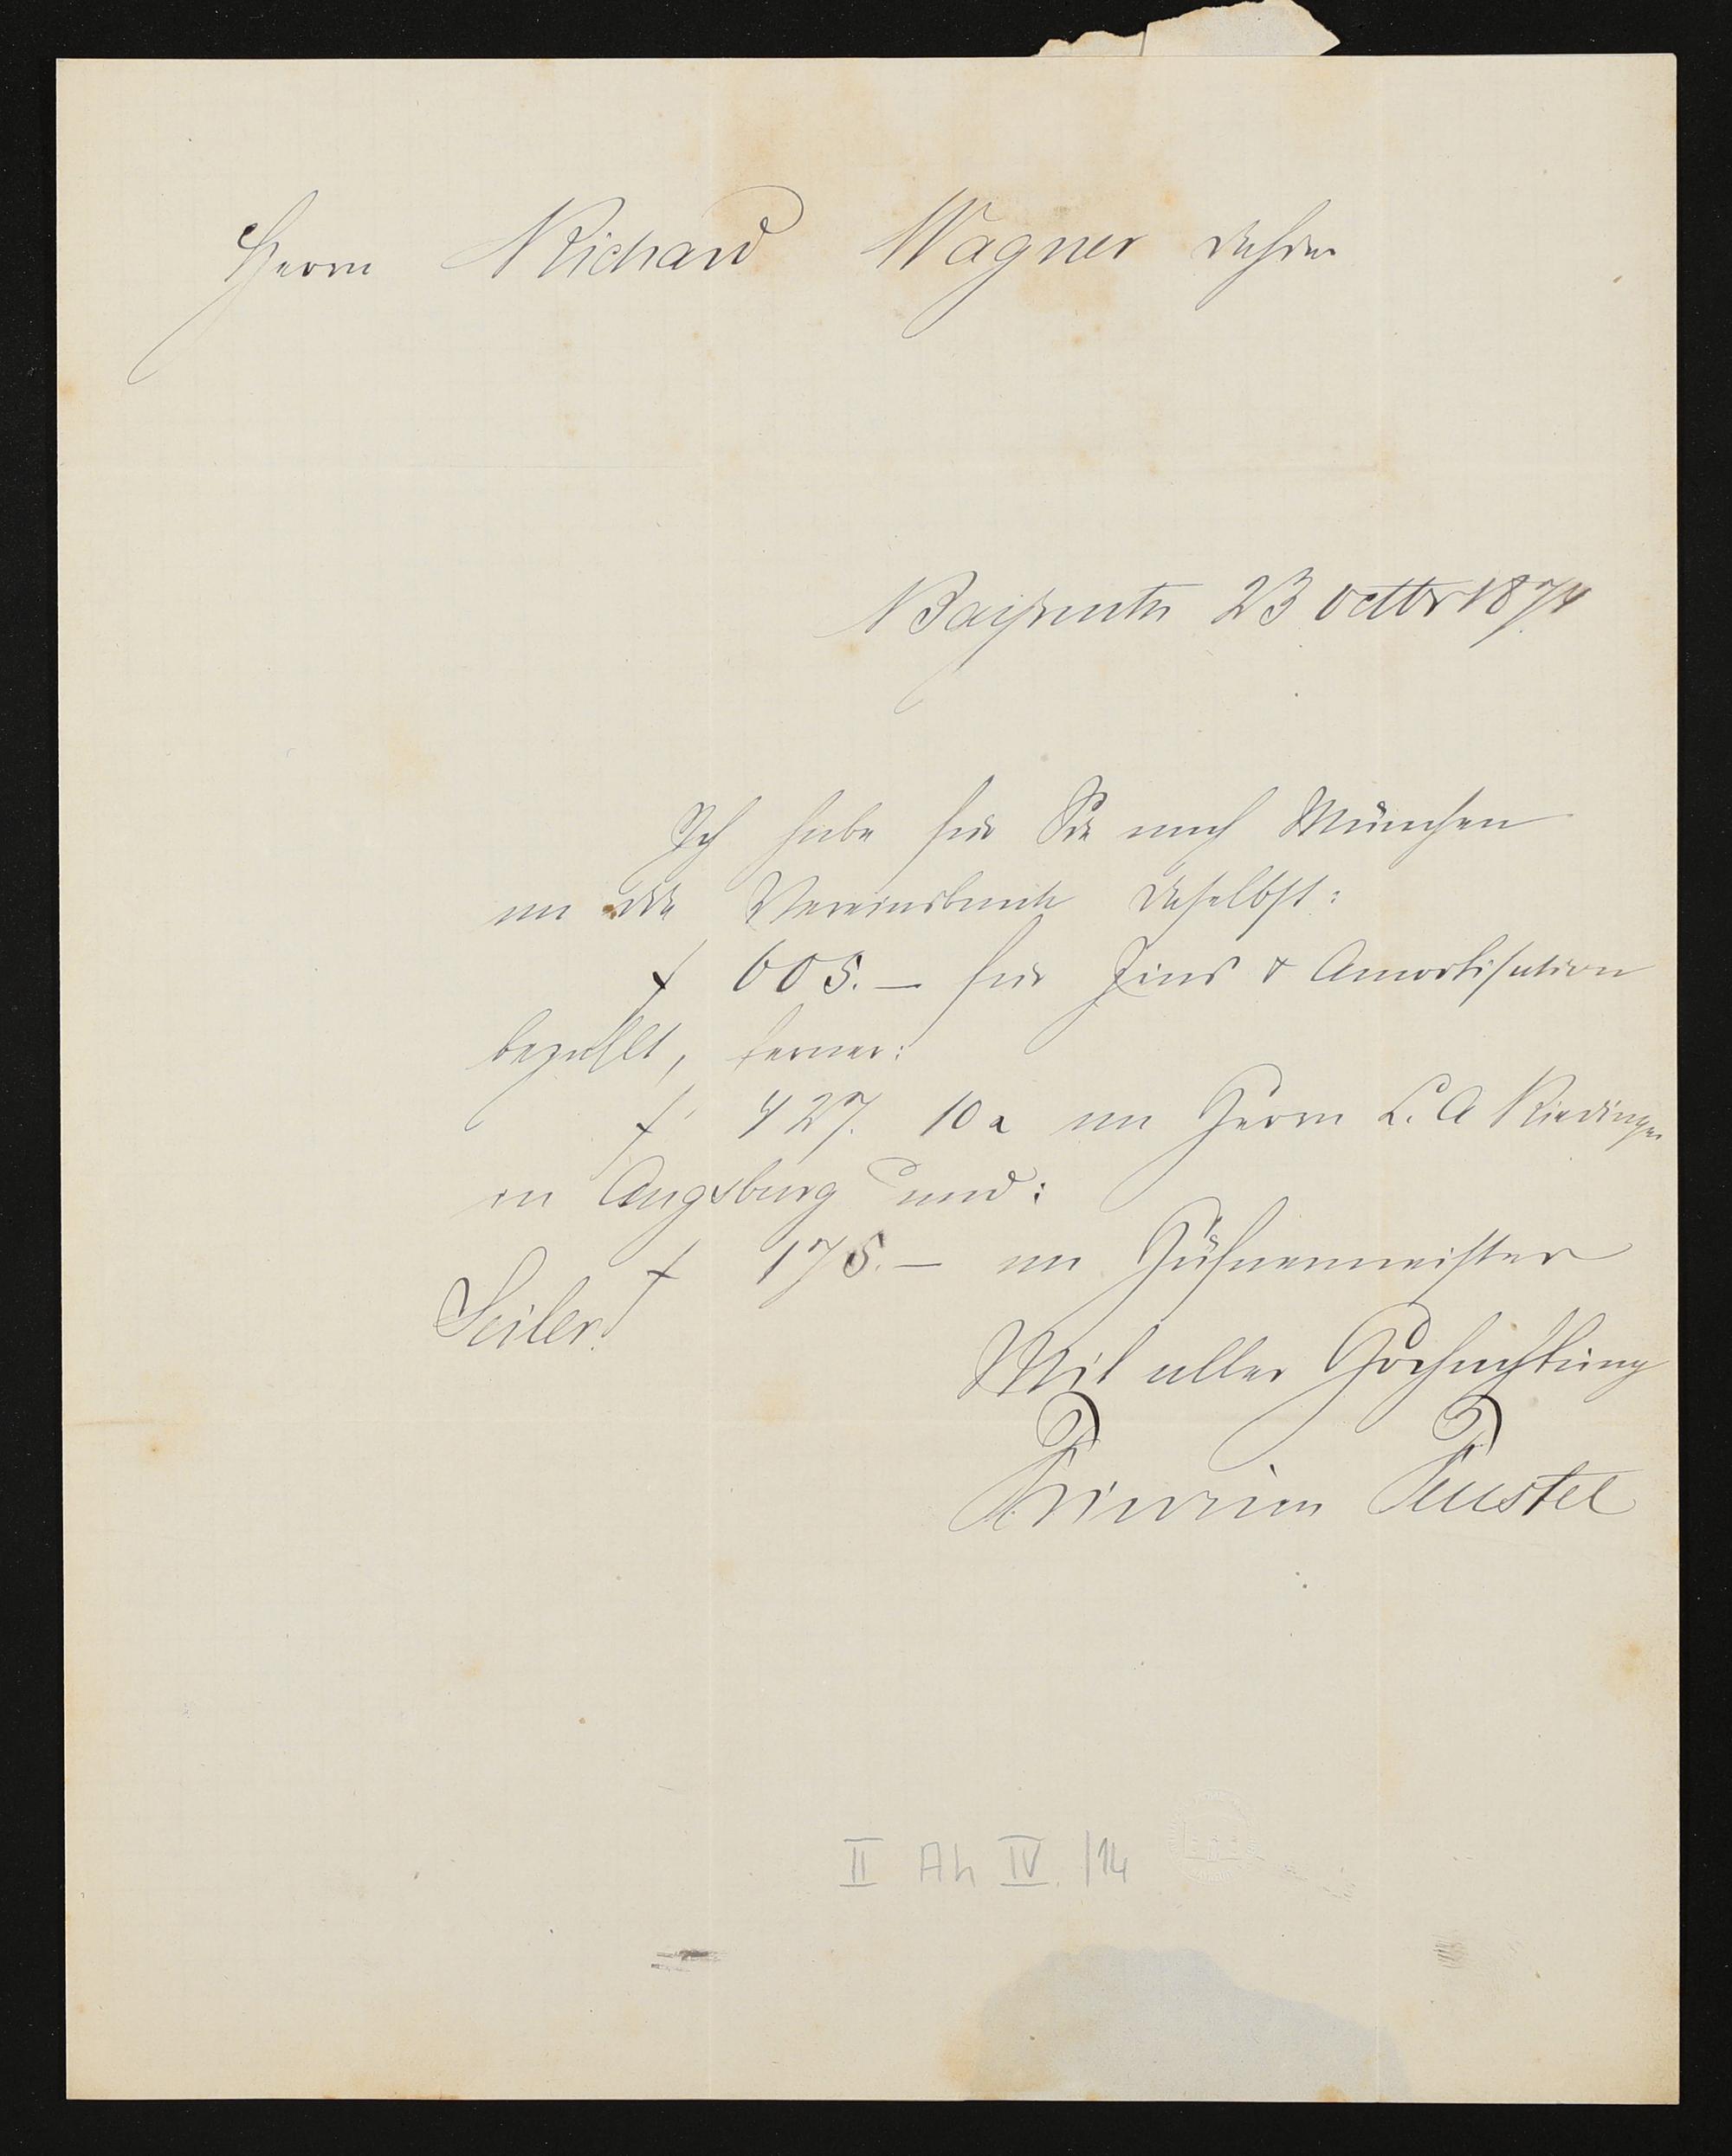 Herrn Richard Wagner dahier
Bayreuth 23 octbr 1874
Ich habe für Sie nach München
an die Vereinsbank daselbst:
f 605.— für Zins & Amortisation
bezahlt, ferner:
f 427. 10 x an Herrn L. A Riedinger
in Augsburg und:
f 175.— an Hühnermeister
Seiler.
Mit aller Hochachtung
Feustel
II Ah IV. /14